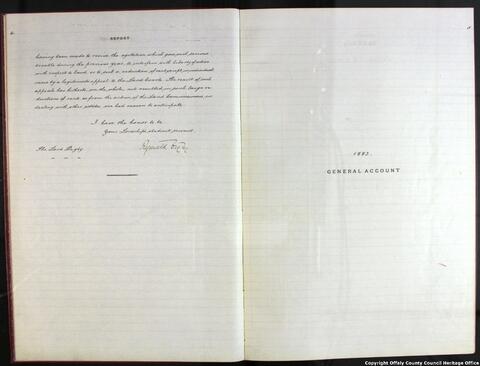 REPORT
having been made to revive the agitation which gave such serious
trouble during the previous year, to interfere with liberty of action
with respect to land, or to get a reduction of rent, except, in individual
cases by a legitimate appeal to the Land Courts. The result of such
appeals has hitherto, on the whole, not resulted in such large re-
ductions of rent as from the action of the Land Commissioners, in
dealing with other estates, we had reason to anticipate.
I have the honor to be
Your Lordship's obedient servant,
The Lord Digby
Reginald Digby
1883.
GENERAL ACCOUNT
Copyright Offaly County Council Heritage Office